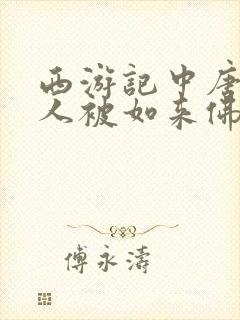 西游記中唐
人被如来佛
傅永濤